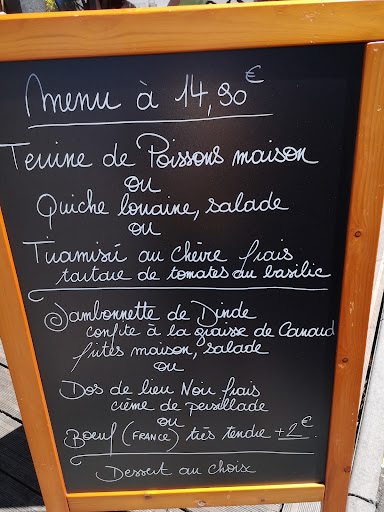 Menu à 14,90€
Terrine de Poissons maison
ou
Quiche lorraine, salade
ou
Tiramisú au chèvre frais
tartare de tomates au basilic
Jambonnette de Dinde
confite à la graisse de Canard
frites maison, salade
ou
Dos de lieu Noir frais
crème de persillade
ou
Boeuf (FRANCE) très tendre +2€.
Dessert au choix